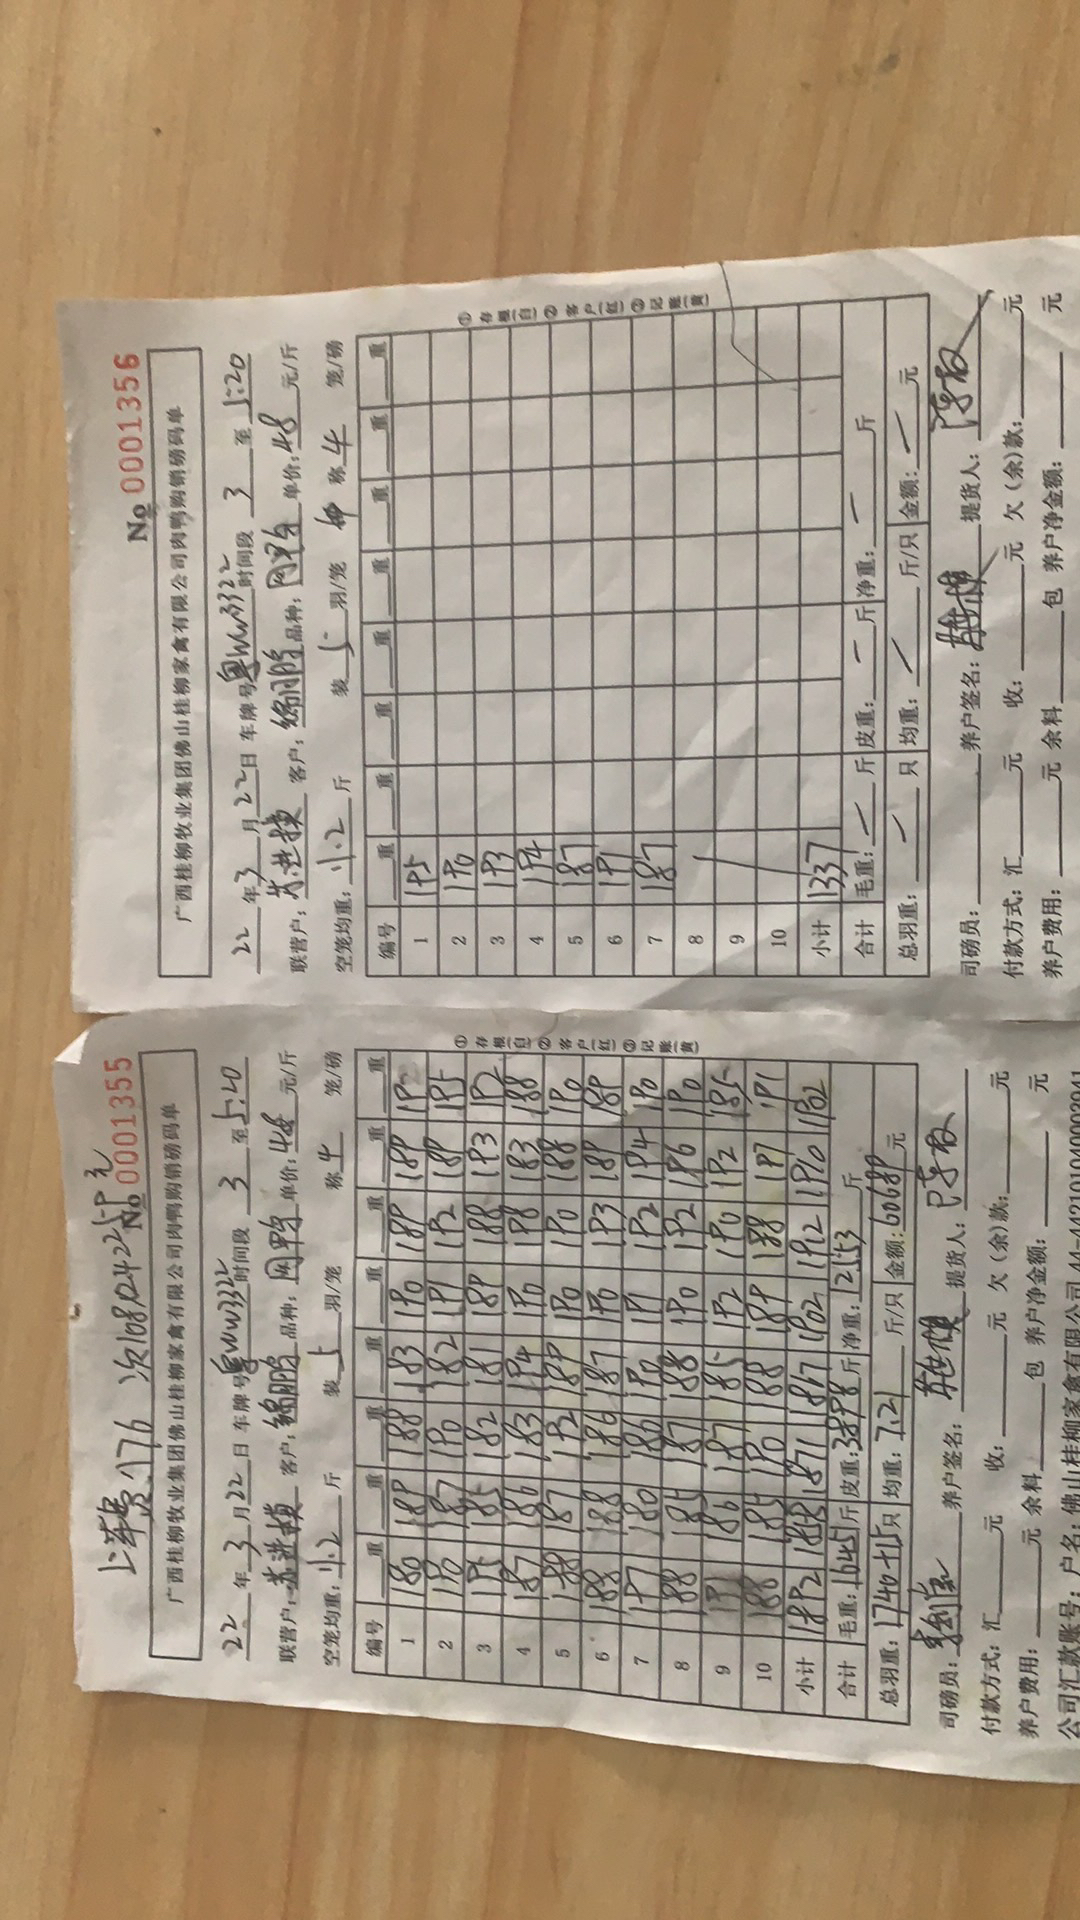 上车费:176
No 0001355
广西桂柳牧业集团佛山桂柳家禽有限公司肉鸭购销磅码单
22 年 3 月 22 日 车牌号 粤WW3322 时间段 3 至 5:20
联营户: 客户: 锦鹏 品种: 单价: 4.8 元/斤
空笼均重: 11.2 斤 装 5 羽/笼 称 4 笼/磅
编号 重 重 重 重 重 重 重 重
1 180 189 188 183 190 189 189 19
2 190 187 190 182 191 192 189 195
3 195 185 182 181 189 188 193 192
4 187 186 183 194 190 198 183 188
5 188 187 192 189 190 190 188 190
6 188 188 186 187 190 193 189 189
7 197 180 186 190 191 192 194 190
8 188 185 187 188 190 192 196 190
9 191 186 187 185 192 190 192 185
10 188 185 190 188 189 188 197 191
小计 1892 1858 1871 1867 1902 1912 1910 1902
合计 毛重: 16451 斤 皮重: 3898 斤 净重: 12553 斤
总羽重: 1740+15 只 均重: 7.21 斤/只 金额: 60689 元
司磅员: 养户签名: 提货人:
付款方式: 汇 元 收: 元 欠(余)款: 元
养户费用: 元 余料 包 养户净金额: 元
公司汇款账号: 户名: 佛山桂柳家禽有限公司 44-442101040003941
① 存根(白) ② 客户(红) ③ 记账(黄)
No 0001356
广西桂柳牧业集团佛山桂柳家禽有限公司肉鸭购销磅码单
22 年 3 月 22 日 车牌号 粤WW3322 时间段 3 至 5:20
联营户: 客户: 锦鹏 品种: 单价: 4.8 元/斤
空笼均重: 11.2 斤 装 5 羽/笼 称 4 笼/磅
编号 重 重 重 重 重 重 重 重
1 195
2 190
3 193
4 194
5 187
6 191
7 187
8
9
10
小计 1337
合计 毛重: 斤 皮重: 斤 净重: 斤
总羽重: 只 均重: 斤/只 金额: 元
司磅员: 养户签名: 提货人:
付款方式: 汇 元 收: 元 欠(余)款: 元
养户费用: 元 余料 包 养户净金额: 元
① 存根(白) ② 客户(红) ③ 记账(黄)